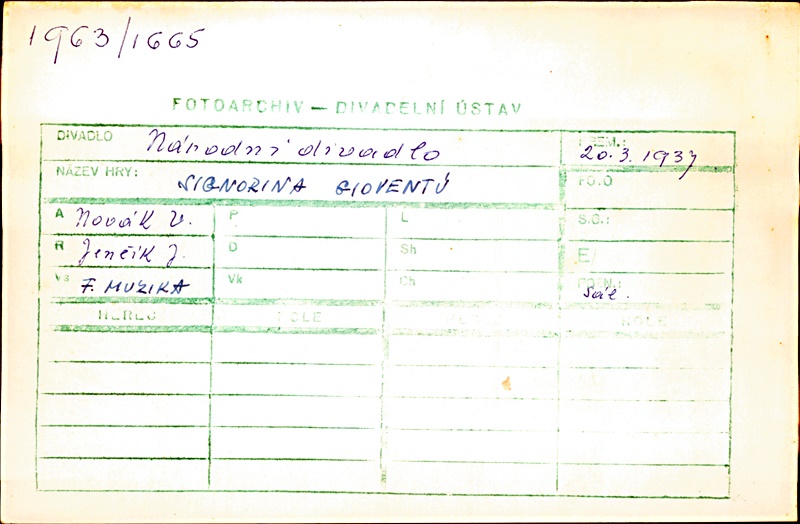 1963/1665
FOTOARCHIV — DIVADELNÍ ÚSTAV
DIVADLO Národní divadlo
PREM.: 20.3.1937
NÁZEV HRY: SIGNORINA GIOVENTÚ
FOTO
A Novák V. P L S.G.:
R Jenčík J. D Sh E/
Vs F. MUZIKA Vk Ch
POZN.: sál.
HEREC ROLE HEREC ROLE